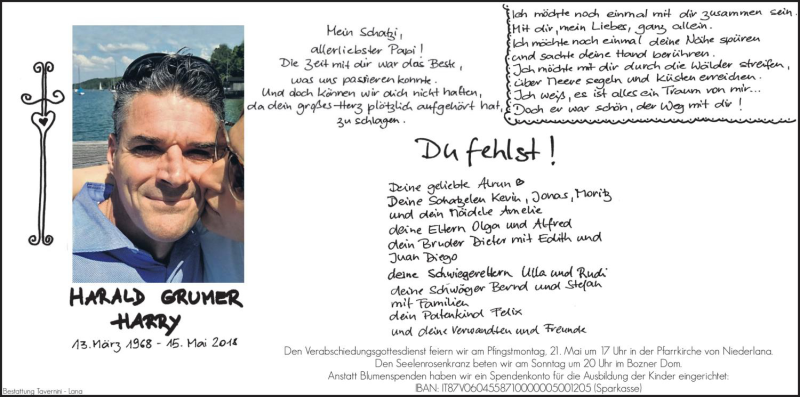 Mein Schatzi,
allerliebster Papi!
Die Zeit mit dir war das Beste,
was uns passieren konnte.
Und doch können wir dich nicht halten,
da dein großes Herz plötzlich aufgehört hat,
zu schlagen.
Ich möchte noch einmal mit dir zusammen sein.
Mit dir, mein Liebes, ganz allein.
Ich möchte noch einmal deine Nähe spüren
und sachte deine Hand berühren.
Ich möchte mit dir durch die Wälder streifen,
über Meere segeln und Küsten erreichen.
Ich weiß, es ist alles ein Traum von mir...
Doch er war schön, der Weg mit dir!
Du fehlst!
Deine geliebte Alrun
Deine Schatzelen Kevin, Jonas, Moritz
und dein Mädele Amelie
deine Eltern Olga und Alfred
dein Bruder Dieter mit Edith und
Juan Diego
deine Schwiegereltern Ulla und Rudi
deine Schwäger Bernd und Stefan
mit Familien
dein Patenkind Felix
und deine Verwandten und Freunde
HARALD GRUMER
HARRY
13. März 1968 - 15. Mai 2018
Den Verabschiedungsgottesdienst feiern wir am Pfingstmontag, 21. Mai um 17 Uhr in der Pfarrkirche von Niederlana.
Den Seelenrosenkranz beten wir am Sonntag um 20 Uhr im Bozner Dom.
Anstatt Blumenspenden haben wir ein Spendenkonto für die Ausbildung der Kinder eingerichtet:
IBAN: IT87V0604558710000005001205 (Sparkasse)
Bestattung Tavernini - Lana